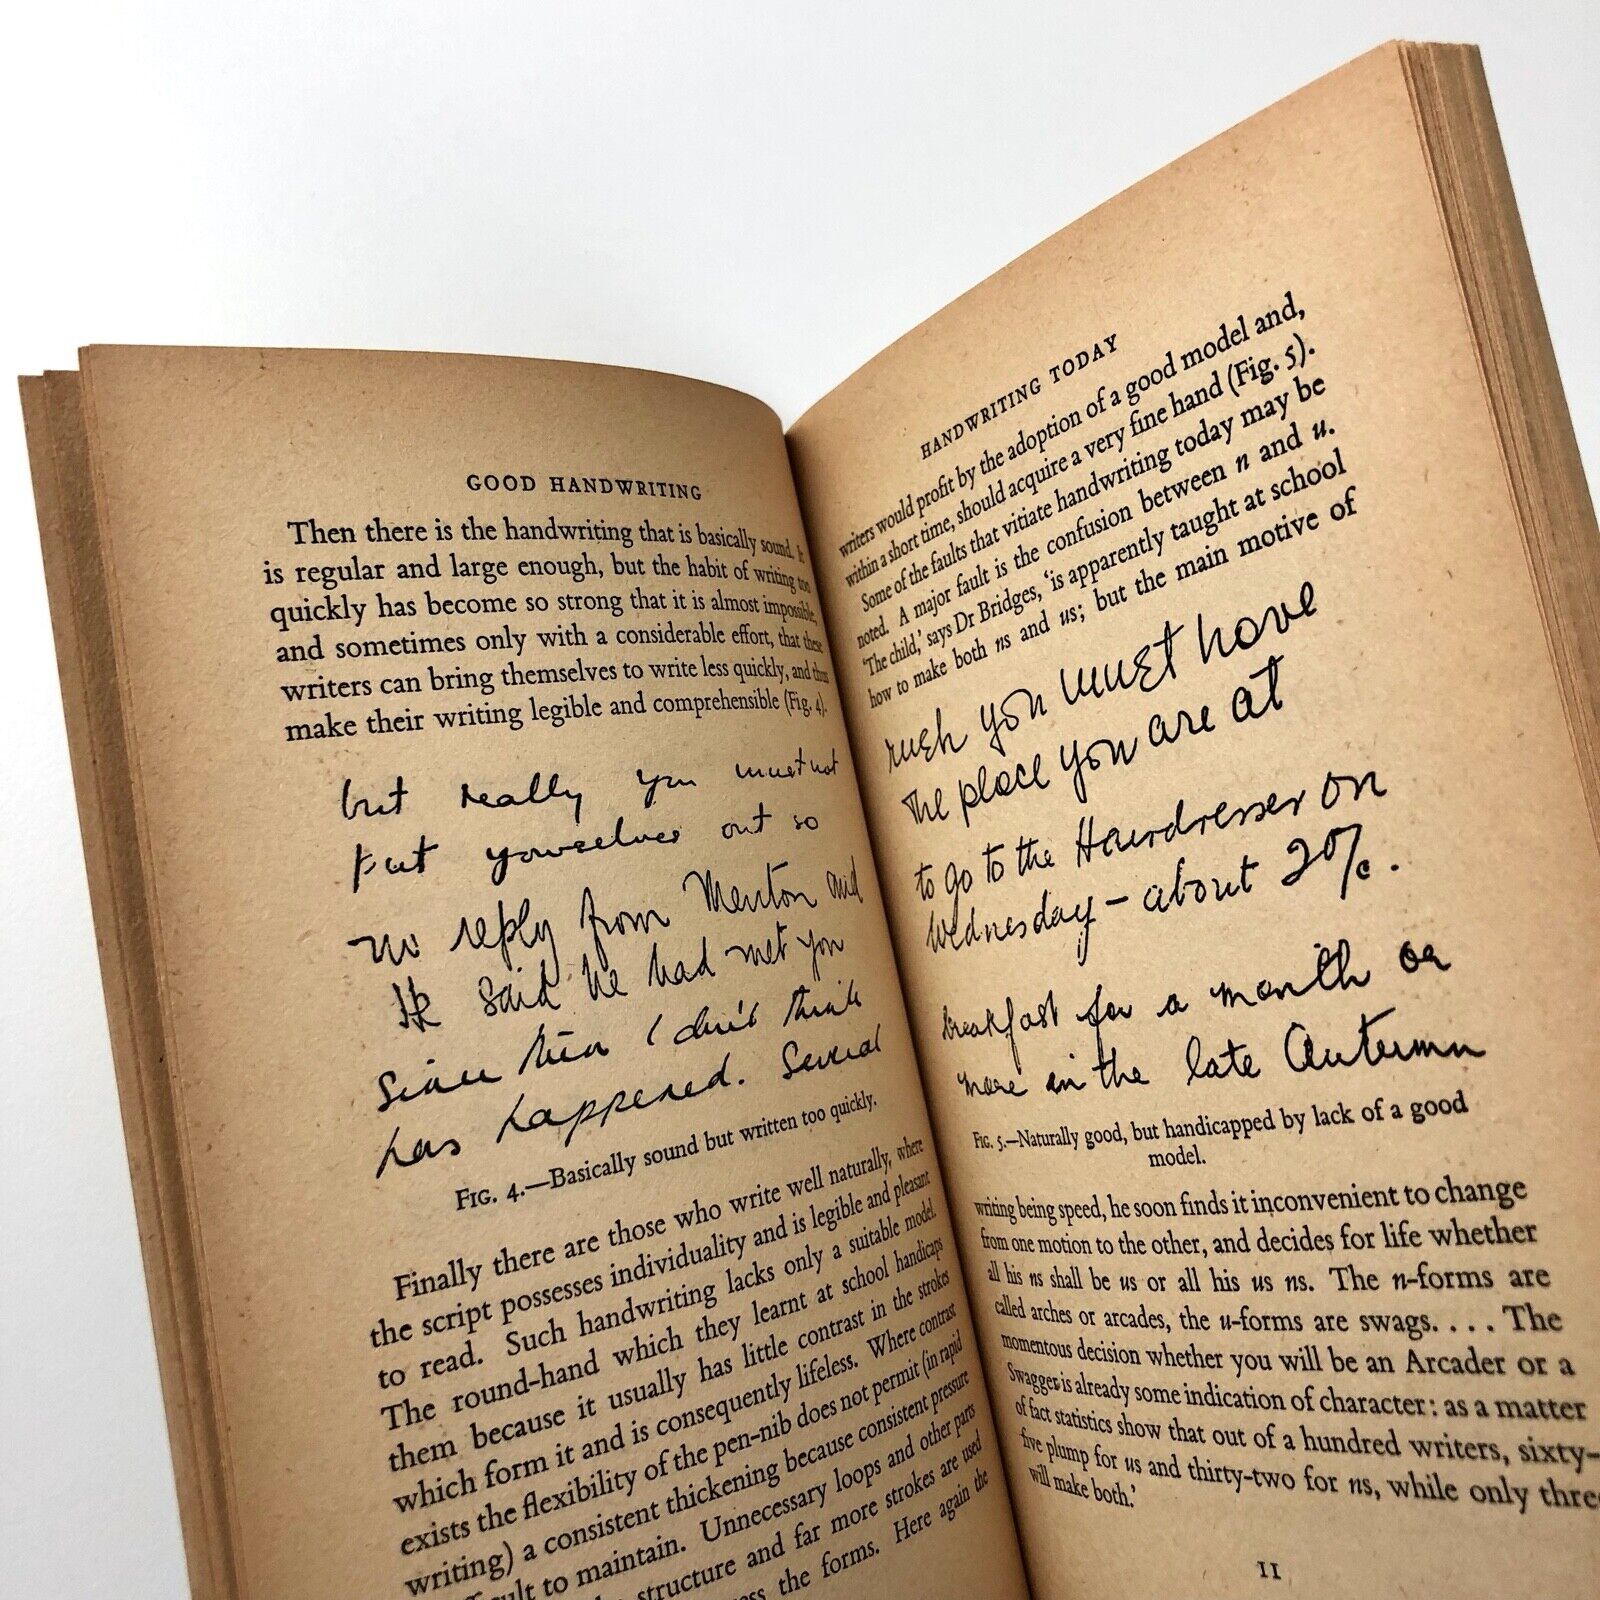 GOOD HANDWRITING
Then there is the handwriting that is basically sound. It
is regular and large enough, but the habit of writing too
quickly has become so strong that it is almost impossible,
and sometimes only with a considerable effort, that these
writers can bring themselves to write less quickly, and thus
make their writing legible and comprehensible (Fig. 4).
but really you must not
put yourselves out so
no reply from Menton and
He said he had met you
Since then I don't think
has happened. Several
FIG. 4.—Basically sound but written too quickly.
Finally there are those who write well naturally, where
the script possesses individuality and is legible and pleasant
to read. Such handwriting lacks only a suitable model.
The round-hand which they learnt at school handicaps
them because it usually has little contrast in the strokes
which form it and is consequently lifeless. Where contrast
exists the flexibility of the pen-nib does not permit (in rapid
writing) a consistent thickening because consistent pressure
to maintain. Unnecessary loops and other parts
structure and far more strokes are used
the forms. Here again the
HANDWRITING TODAY
writers would profit by the adoption of a good model and,
within a short time, should acquire a very fine hand (Fig. 5).
Some of the faults that vitiate handwriting today may be
noted. A major fault is the confusion between n and u.
'The child,' says Dr Bridges, 'is apparently taught at school
how to make both ns and us; but the main motive of
you must have
the place you are at
to go to the Hairdresser on
Wednesday – about 20/.
breakfast for a month or
more in the late Autumn
FIG. 5.—Naturally good, but handicapped by lack of a good
model.
writing being speed, he soon finds it inconvenient to change
from one motion to the other, and decides for life whether
all his ns shall be us or all his us ns. The n-forms are
called arches or arcades, the u-forms are swags. . . . The
momentous decision whether you will be an Arcader or a
Swagger is already some indication of character: as a matter
of fact statistics show that out of a hundred writers, sixty-
five plump for us and thirty-two for ns, while only three
will make both.'
11